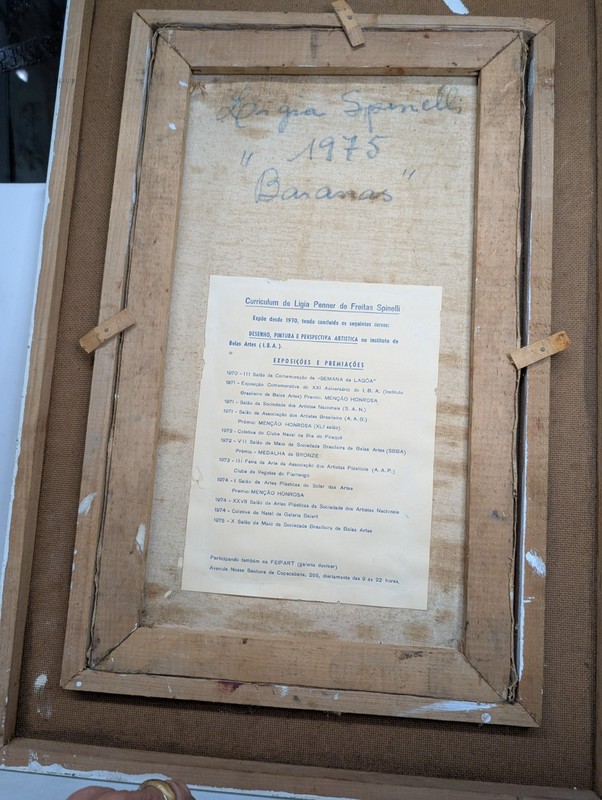 Ligia Spinelli
" 1975
Bananas"
Curriculum de Ligia Penner de Freitas Spinelli
Expõe desde 1970, tendo concluido os seguintes cursos:
DESENHO, PINTURA E PERSPECTIVA ARTISTICA no Instituto de
Belas Artes (I.B.A.)
EXPOSIÇÕES E PREMIAÇÕES
1970 - III Salão da Comemoração da «SEMANA da LAGÔA»
1971 - Exposição Comemorativa do XXI Aniversário do I.B.A. (Instituto
Brasileiro de Belas Artes) Premio: MENÇÃO HONROSA
1971 - Salão da Sociedade dos Artistas Nacionais (S.A.N.)
1971 - Salão da Associação dos Artistas Brasileiro (A.A.B.)
Prêmio: MENÇÃO HONROSA (XLI salão)
1972 - Coletiva do Clube Naval na Ilha do Piraquê
1972 - VII Salão de Maio da Sociedade Brasileira de Belas Artes (SBBA)
Prêmio - MEDALHA de BRONZE
1973 - III Feira de Arte da Associação dos Artistas Plásticos (A.A.P.)
Clube de Regatas do Flamengo
1974 - I Salão de Artes Plásticas do Solar das Artes
Premio: MENÇÃO HONROSA
1974 - XXVII Salão de Artes Plásticas da Sociedade dos Artistas Nacionais
1974 - Coletiva de Natal da Galeria
1975 - X Salão de Maio da Sociedade Brasileira de Belas Artes
Participando também na FEIPART (galeria duvivier)
Avenida Nossa Senhora de Copacabana, 200, diáriamente das 9 às 22 horas,